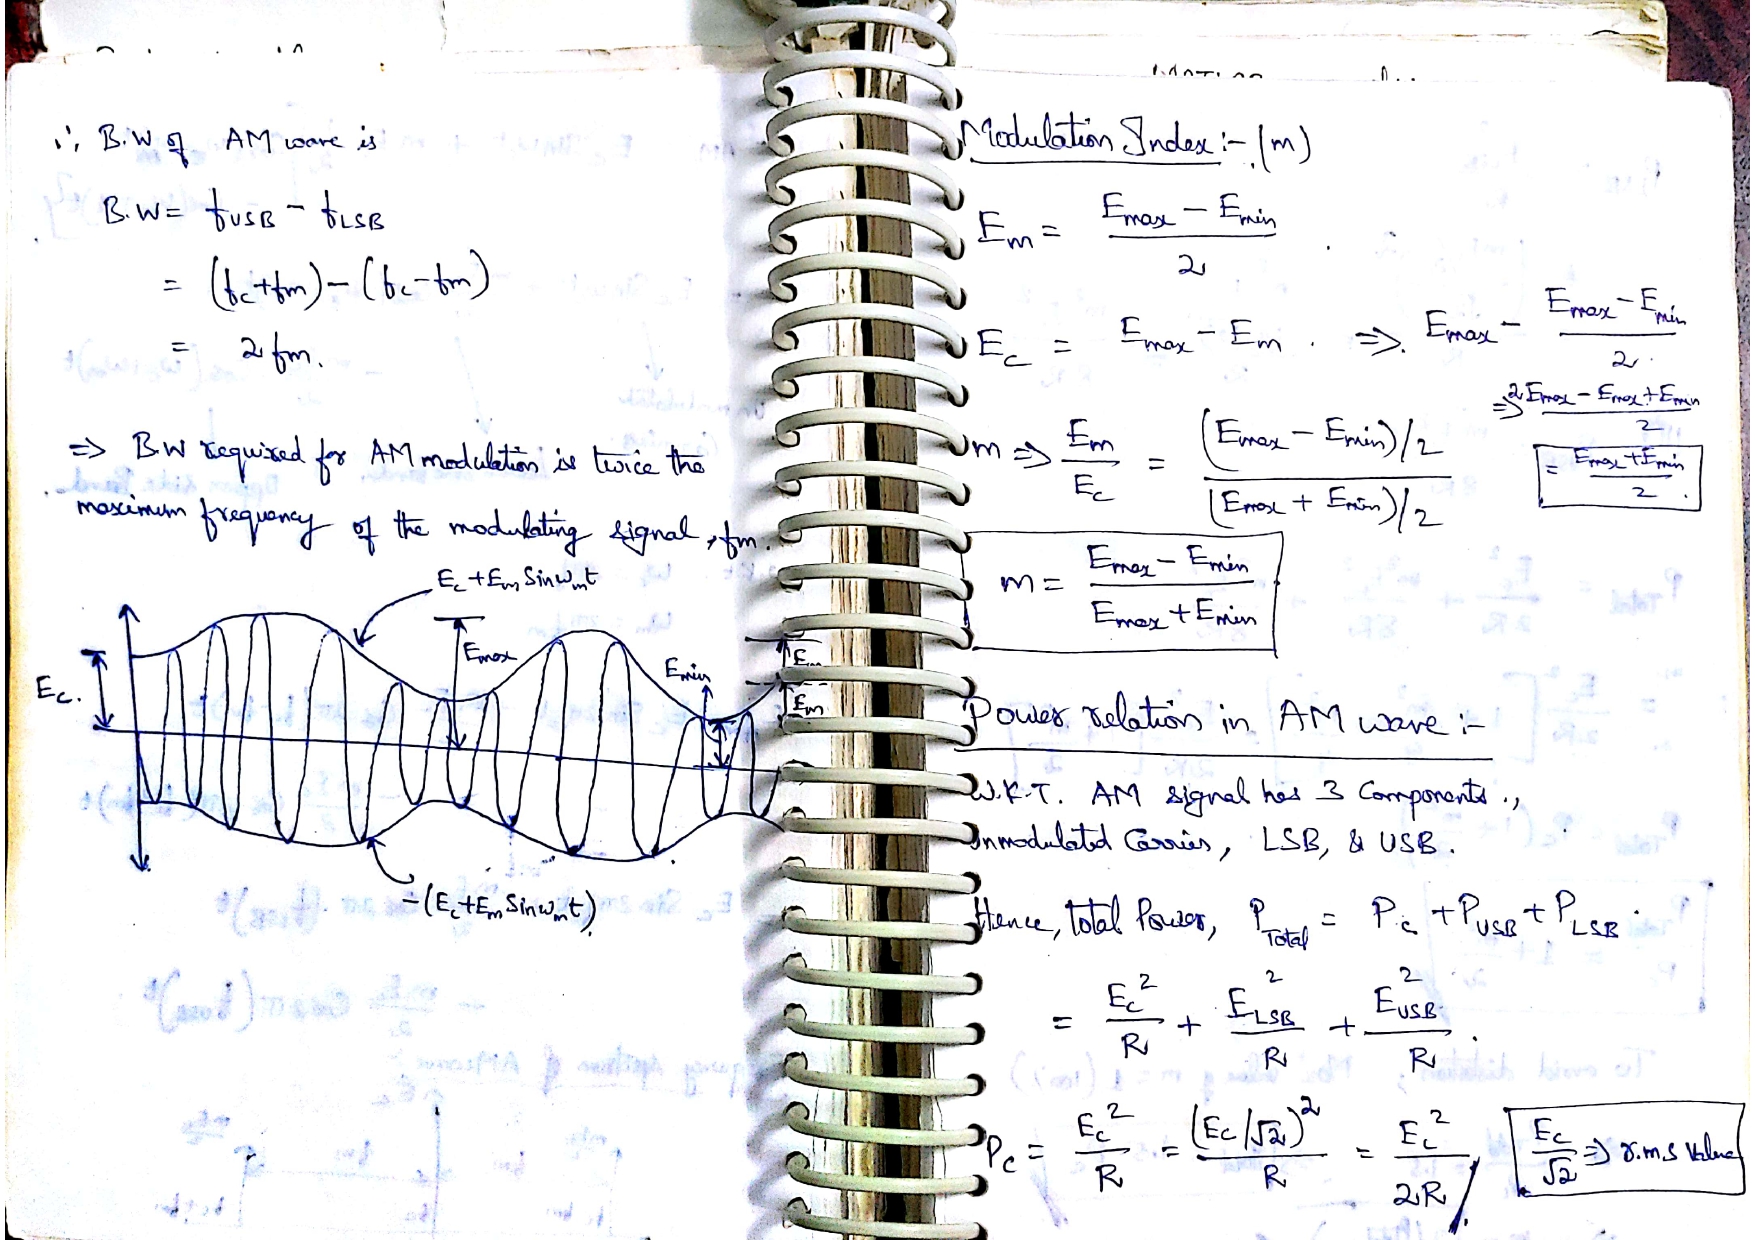 ∴ B.W of AM wave is
B.W = fUSB - fLSB
= (fc+fm) - (fc-fm)
= 2fm.
⇒ BW required for AM modulation is twice the
maximum frequency of the modulating signal, fm.
Ec+Em Sinωmt
Ec.
Emax
Emin
Em
Em
-(Ec+Em Sinωmt)
Modulation Index :- (m)
Em = (Emax - Emin)/2
Ec = Emax - Em. ⇒ Emax - (Emax - Emin)/2.
⇒ (2Emax - Emax + Emin)/2
= (Emax + Emin)/2.
m ⇒ Em/Ec = ((Emax - Emin)/2)/((Emax + Emin)/2)
m = (Emax - Emin)/(Emax + Emin)
Power relation in AM wave :-
W.K.T. AM signal has 3 Components.,
Unmodulated Carrier, LSB, & USB.
Hence, total Power, PTotal = Pc + PUSB + PLSB.
= Ec²/R + ELSB²/R + EUSB²/R.
Pc = Ec²/R = (Ec/√2)²/R = Ec²/2R
Ec/√2 ⇒ r.m.s Value